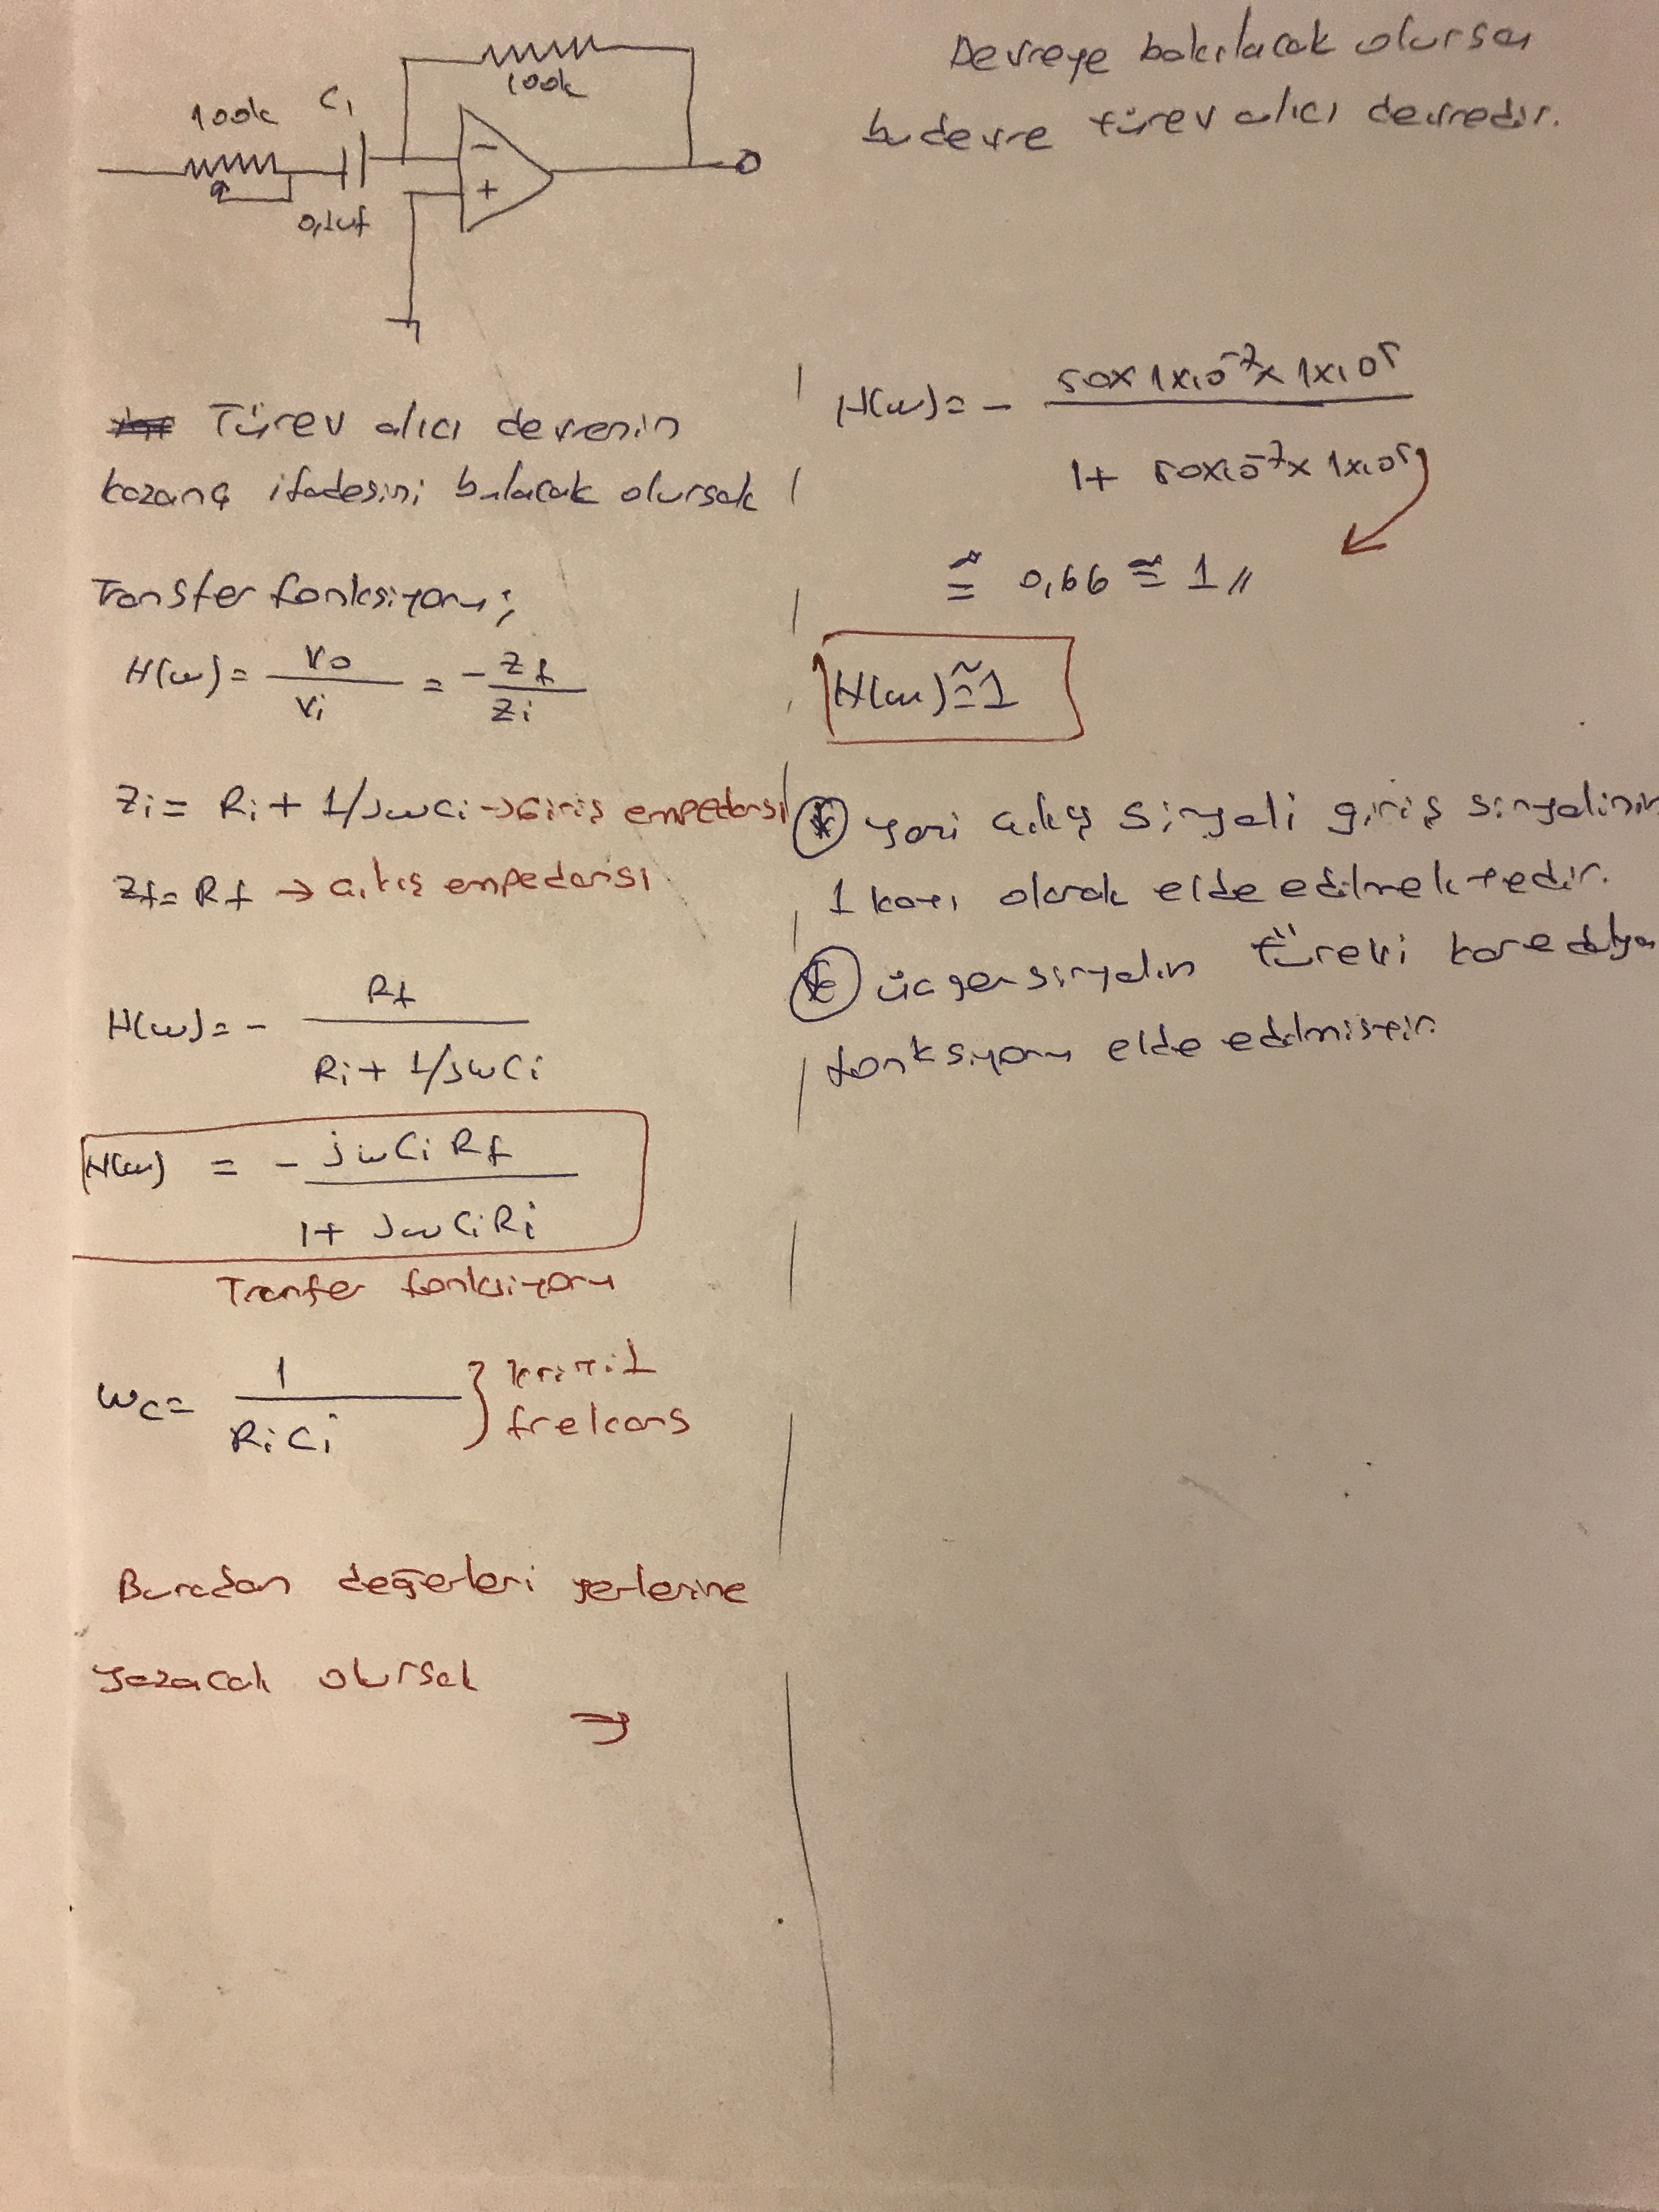 100k
100k
C1
0,1uf
-
+
Devreye bakılacak olursa
bu devre türev alıcı devredir.
Türev alıcı devrenin
kazanç ifadesini bulacak olursak
Transfer fonksiyonu;
H(ω) = Vo / Vi = - Zf / Zi
Zi = Ri + 1/jωCi → Giriş empedansı
Zf = Rf → çıkış empedansı
H(ω) = - Rf / Ri + 1/jωCi
H(ω) = - jωCiRf / 1+ jωCiRi
Tranfer fonksiyonu
ωc = 1 / RiCi } kritik frekans
Buradan değerleri yerlerine
yazacak olursak
⇒
H(ω) = - 50x1x10^-7x1x10^5 / 1+ 50x10^-7x1x10^5
≅ 0,66 ≅ 1 //
H(ω) ≅ 1
* yani çıkış sinyali giriş sinyalinin
1 katı olarak elde edilmektedir.
* üçgen sinyalin türevi kare dalga
fonksiyonu elde edilmiştir.